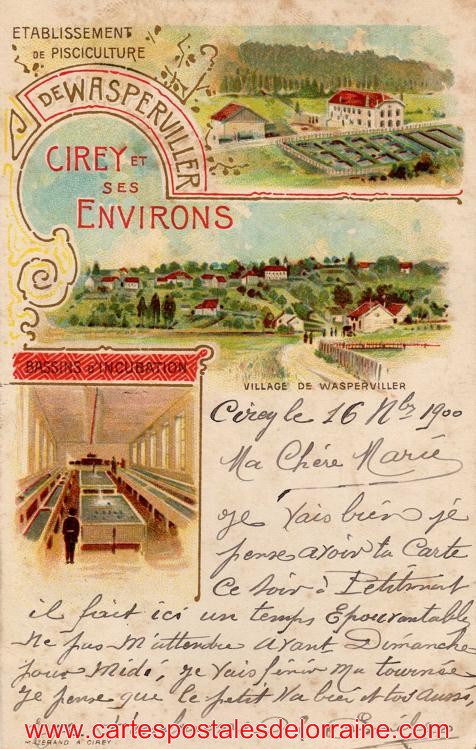 ETABLISSEMENT
DE PISCICULTURE
DE WASPERVILLER
CIREY ET
SES
ENVIRONS
BASSINS D'INCUBATION
VILLAGE DE WASPERVILLER
Cirey le 16 Nbre 1900
Ma Chère Marie
Je Vais bien je
pense avoir ta Carte
Ce Soir à Petitmont
il fait ici un temps Epouvantable
Ne pas M'attendre Avant Dimanche
pour Midi, je Vais finir Ma tournée
Je pense que le petit Va bien et toi Aussi,
www.cartespostalesdelorraine.com
MAZERAND A CIREY.